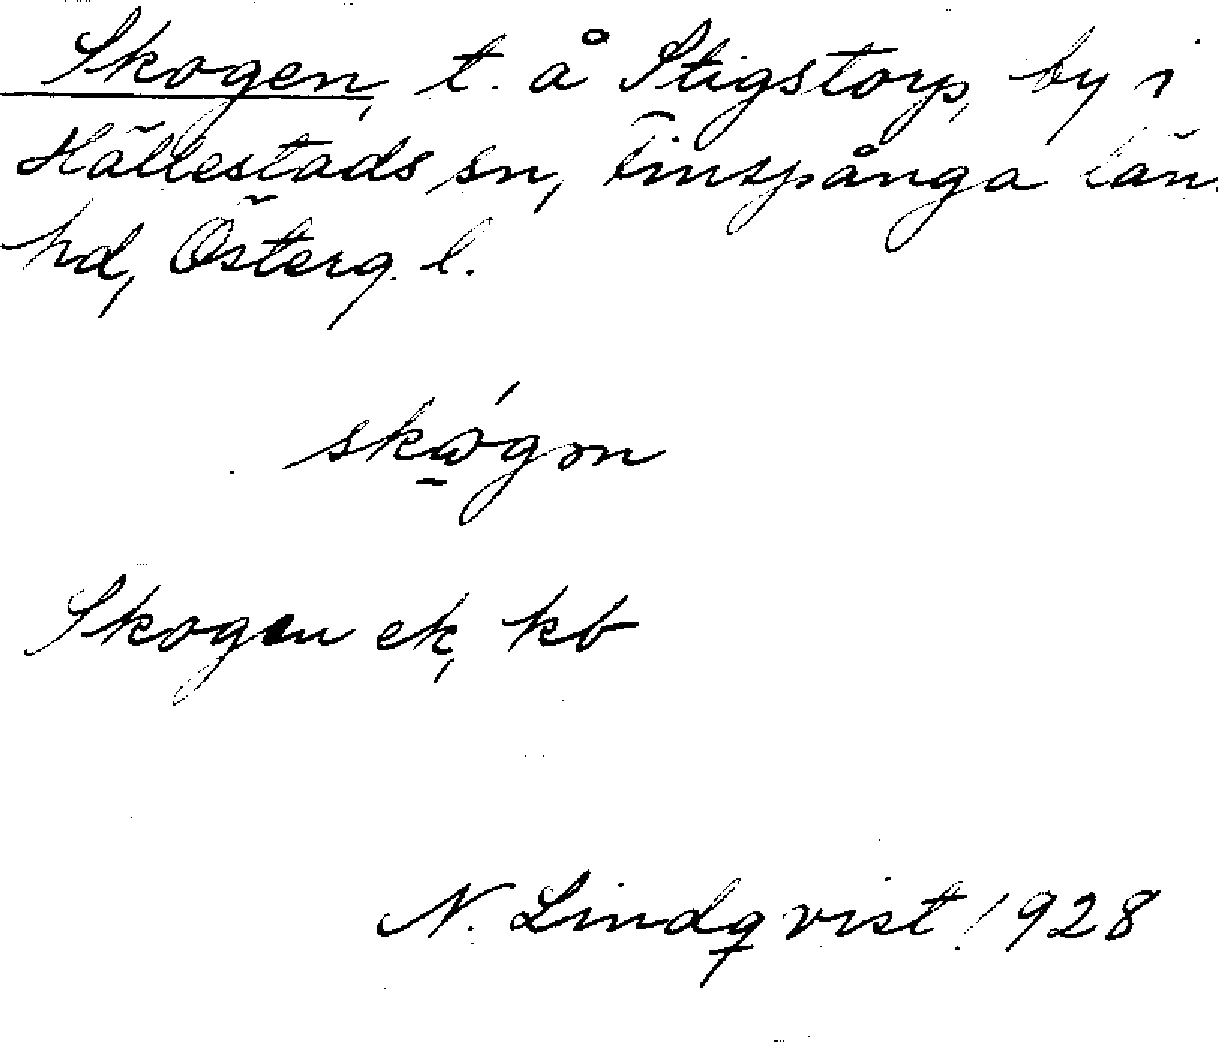 Skogen, t. å Stigstorp, by i
Hällestads sn, Finspånga län.
hd, Österg. l.
skωgən
Skogen ek, kb
N. Lindqvist 1928